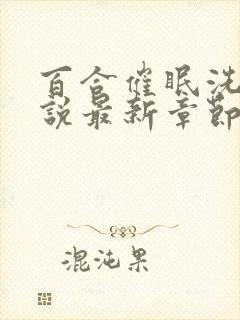 百合催眠洗
說最新章節
混沌果